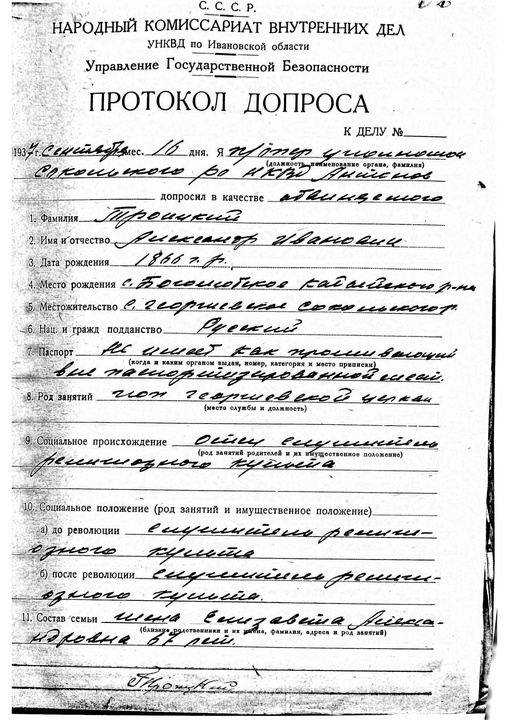 С. С. С. Р.
НАРОДНЫЙ КОМИССАРИАТ ВНУТРЕННИХ ДЕЛ
УНКВД по Ивановской области
Управление Государственной Безопасности
ПРОТОКОЛ ДОПРОСА
К ДЕЛУ №
1937 г. сентября мес. 16 дня. Я
(должность, наименование органа, фамилия)
Сокольского ро НКВД Антонов
допросил в качестве обвиняемого
1. Фамилия Троицкий
2. Имя и отчество Александр Иванович
3. Дата рождения 1866 г.р.
4. Место рождения с. Боголюбское
5. Местожительство с. Георгиевское Сокольского р.
6. Нац. и гражд подданство Русский
7. Паспорт Не имеет как проживающий
(когда и каким органом выдан, номер, категория и место приписки)
вне паспортизированной мест.
8. Род занятий поп Георгиевской церкви
(место службы и должность)
9. Социальное происхождение Отец служитель
(род занятий родителей и их имущественное положение)
религиозного культа
10. Социальное положение (род занятий и имущественное положение)
а) до революции служитель религи-
озного культа
б) после революции служитель религи-
озного культа.
11. Состав семьи жена Елизавета Алекса-
ндровна 67 лет.
(близкие родственники и их имена, фамилия, адреса и род занятий)
Троицкий